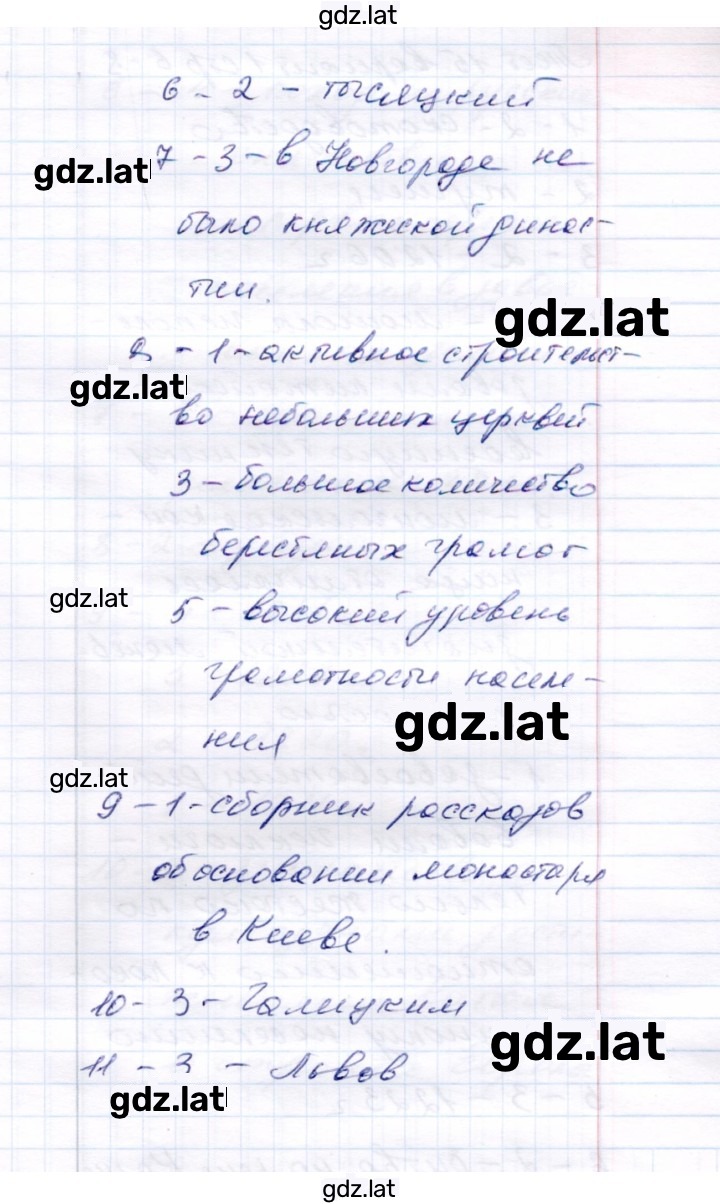 gdz.lat
6 - 2 - тысяцкий
gdz.lat
7 - 3 - в Новгороде не
было княжеской динас-
тии.
gdz.lat
8 - 1 - активное строительст-
gdz.lat
во небольших церквей
3 - большое количество
берестяных грамот
gdz.lat
5 - высокий уровень
грамотности населе-
gdz.lat
ния
gdz.lat
9 - 1 - сборник рассказов
об основании монастыря
в Киеве.
10 - 3 - Галицким
gdz.lat
11 - 3 - Львов
gdz.lat
gdz.lat